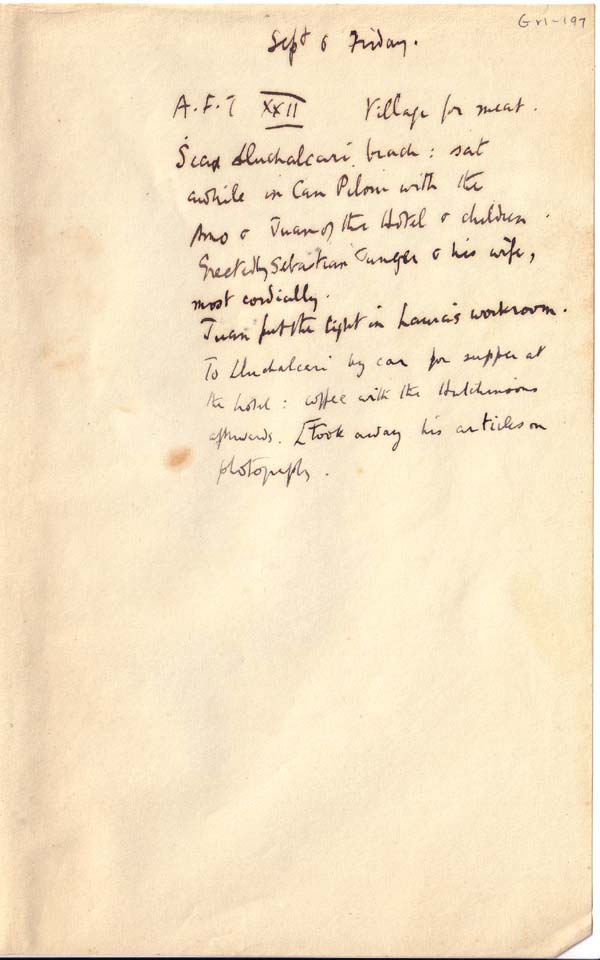 GVI-197
Sept 6 Friday.
A.F.T XXII Village for meat.
Sica Lluchalcari beach: sat
awhile in Can Pilom with the
Amo & Juan of the Hotel & children.
Greeted by Sebastian & his wife,
most cordially.
Juan put the light in Laura's workroom.
To Lluchalcari by car for supper at
the hotel: coffee with the Hutchinsons
afterwards. I took away his articles on
photography.